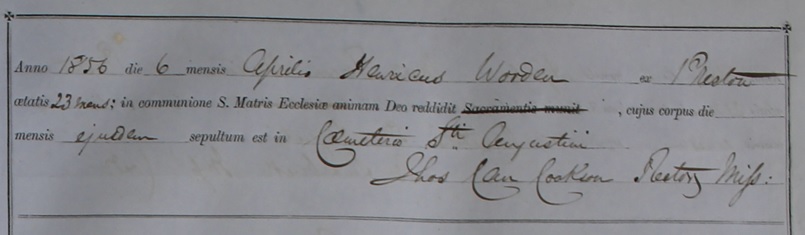 Anno 1856 die 6 mensis Aprilis Henricus Worden ex Preston
ætatis 23 mens: in communione S. Matris Ecclesiæ animam Deo reddidit Sacramentis munit , cujus corpus die
mensis ejusdem sepultum est in Cœmeterio Sti Augustini
Thos Can Cookson Rector Miss: